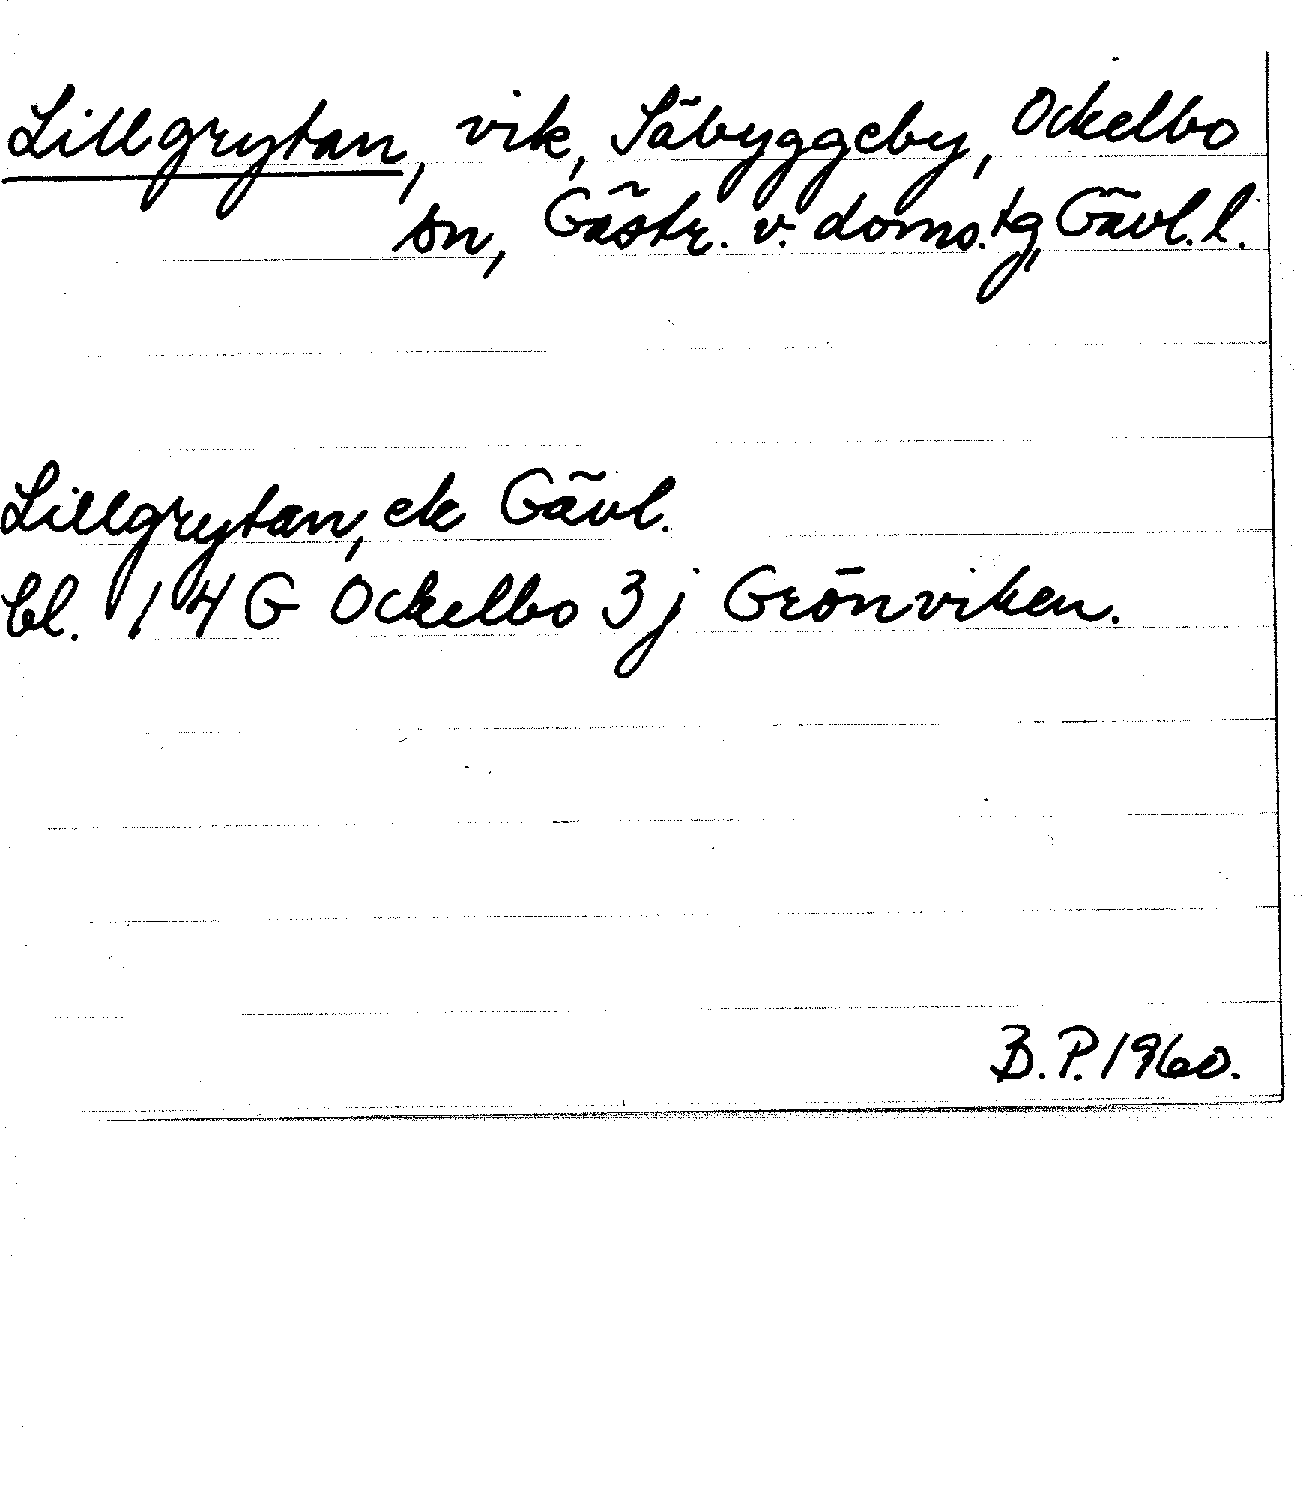 Lillgrytan, vik, Säbyggeby, Ockelbo
sn, Gästr. v. doms.tg, Gävl. l.
Lillgrytan, ek Gävl.
bl. 14 G Ockelbo 3j Grönviken.
B.P. 1960.